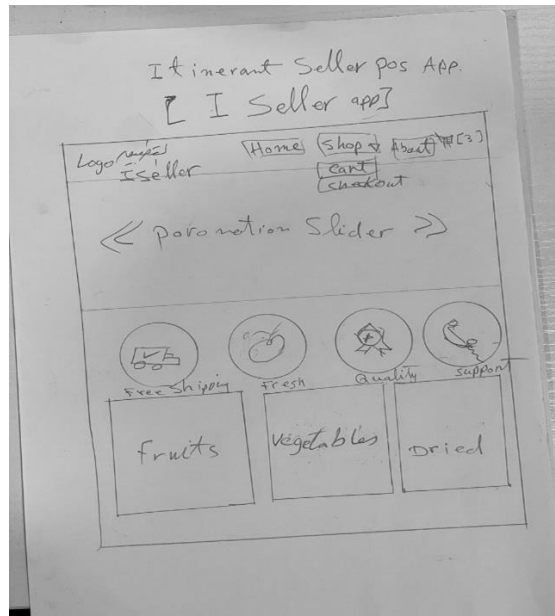 Itinerant Seller pos App.
[ I Seller app]
Logo
Iseller
Home
Shop
About
[3]
cart
checkout
<< Poromotion Slider >>
Free Shipping
fresh
Quality
support
fruits
vegetables
Dried